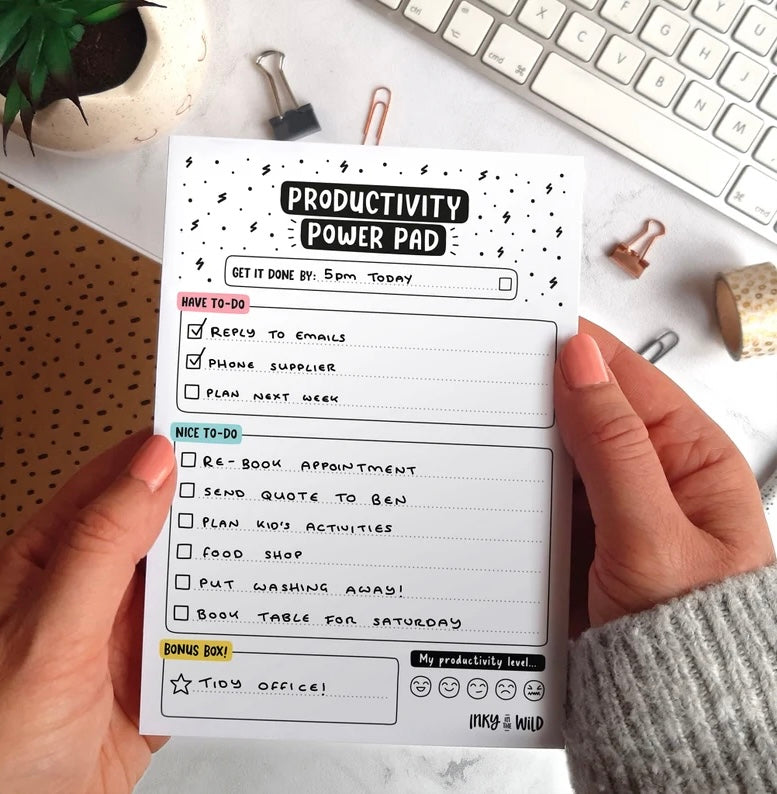 PRODUCTIVITY
POWER PAD
GET IT DONE BY: 5pm TODAY
HAVE TO-DO
REPLY TO EMAILS
PHONE SUPPLIER
PLAN NEXT WEEK
NICE TO-DO
RE-BOOK APPOINTMENT
SEND QUOTE TO BEN
PLAN KID'S ACTIVITIES
FOOD SHOP
PUT WASHING AWAY!
BOOK TABLE FOR SATURDAY
BONUS BOX!
TIDY OFFICE!
My productivity level...
INKY IN THE WILD
alt
cmd ⌘
X
C
V
B
N
M
F
G
H
J
Y
U
cmd ⌘